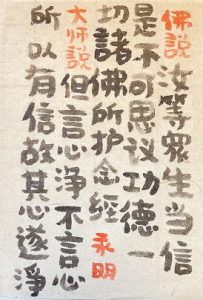 佛説汝等眾生当信
是不可思议功德一
切諸佛所护念經永明
大师説但言心淨不言心
所以有信故其心遂淨